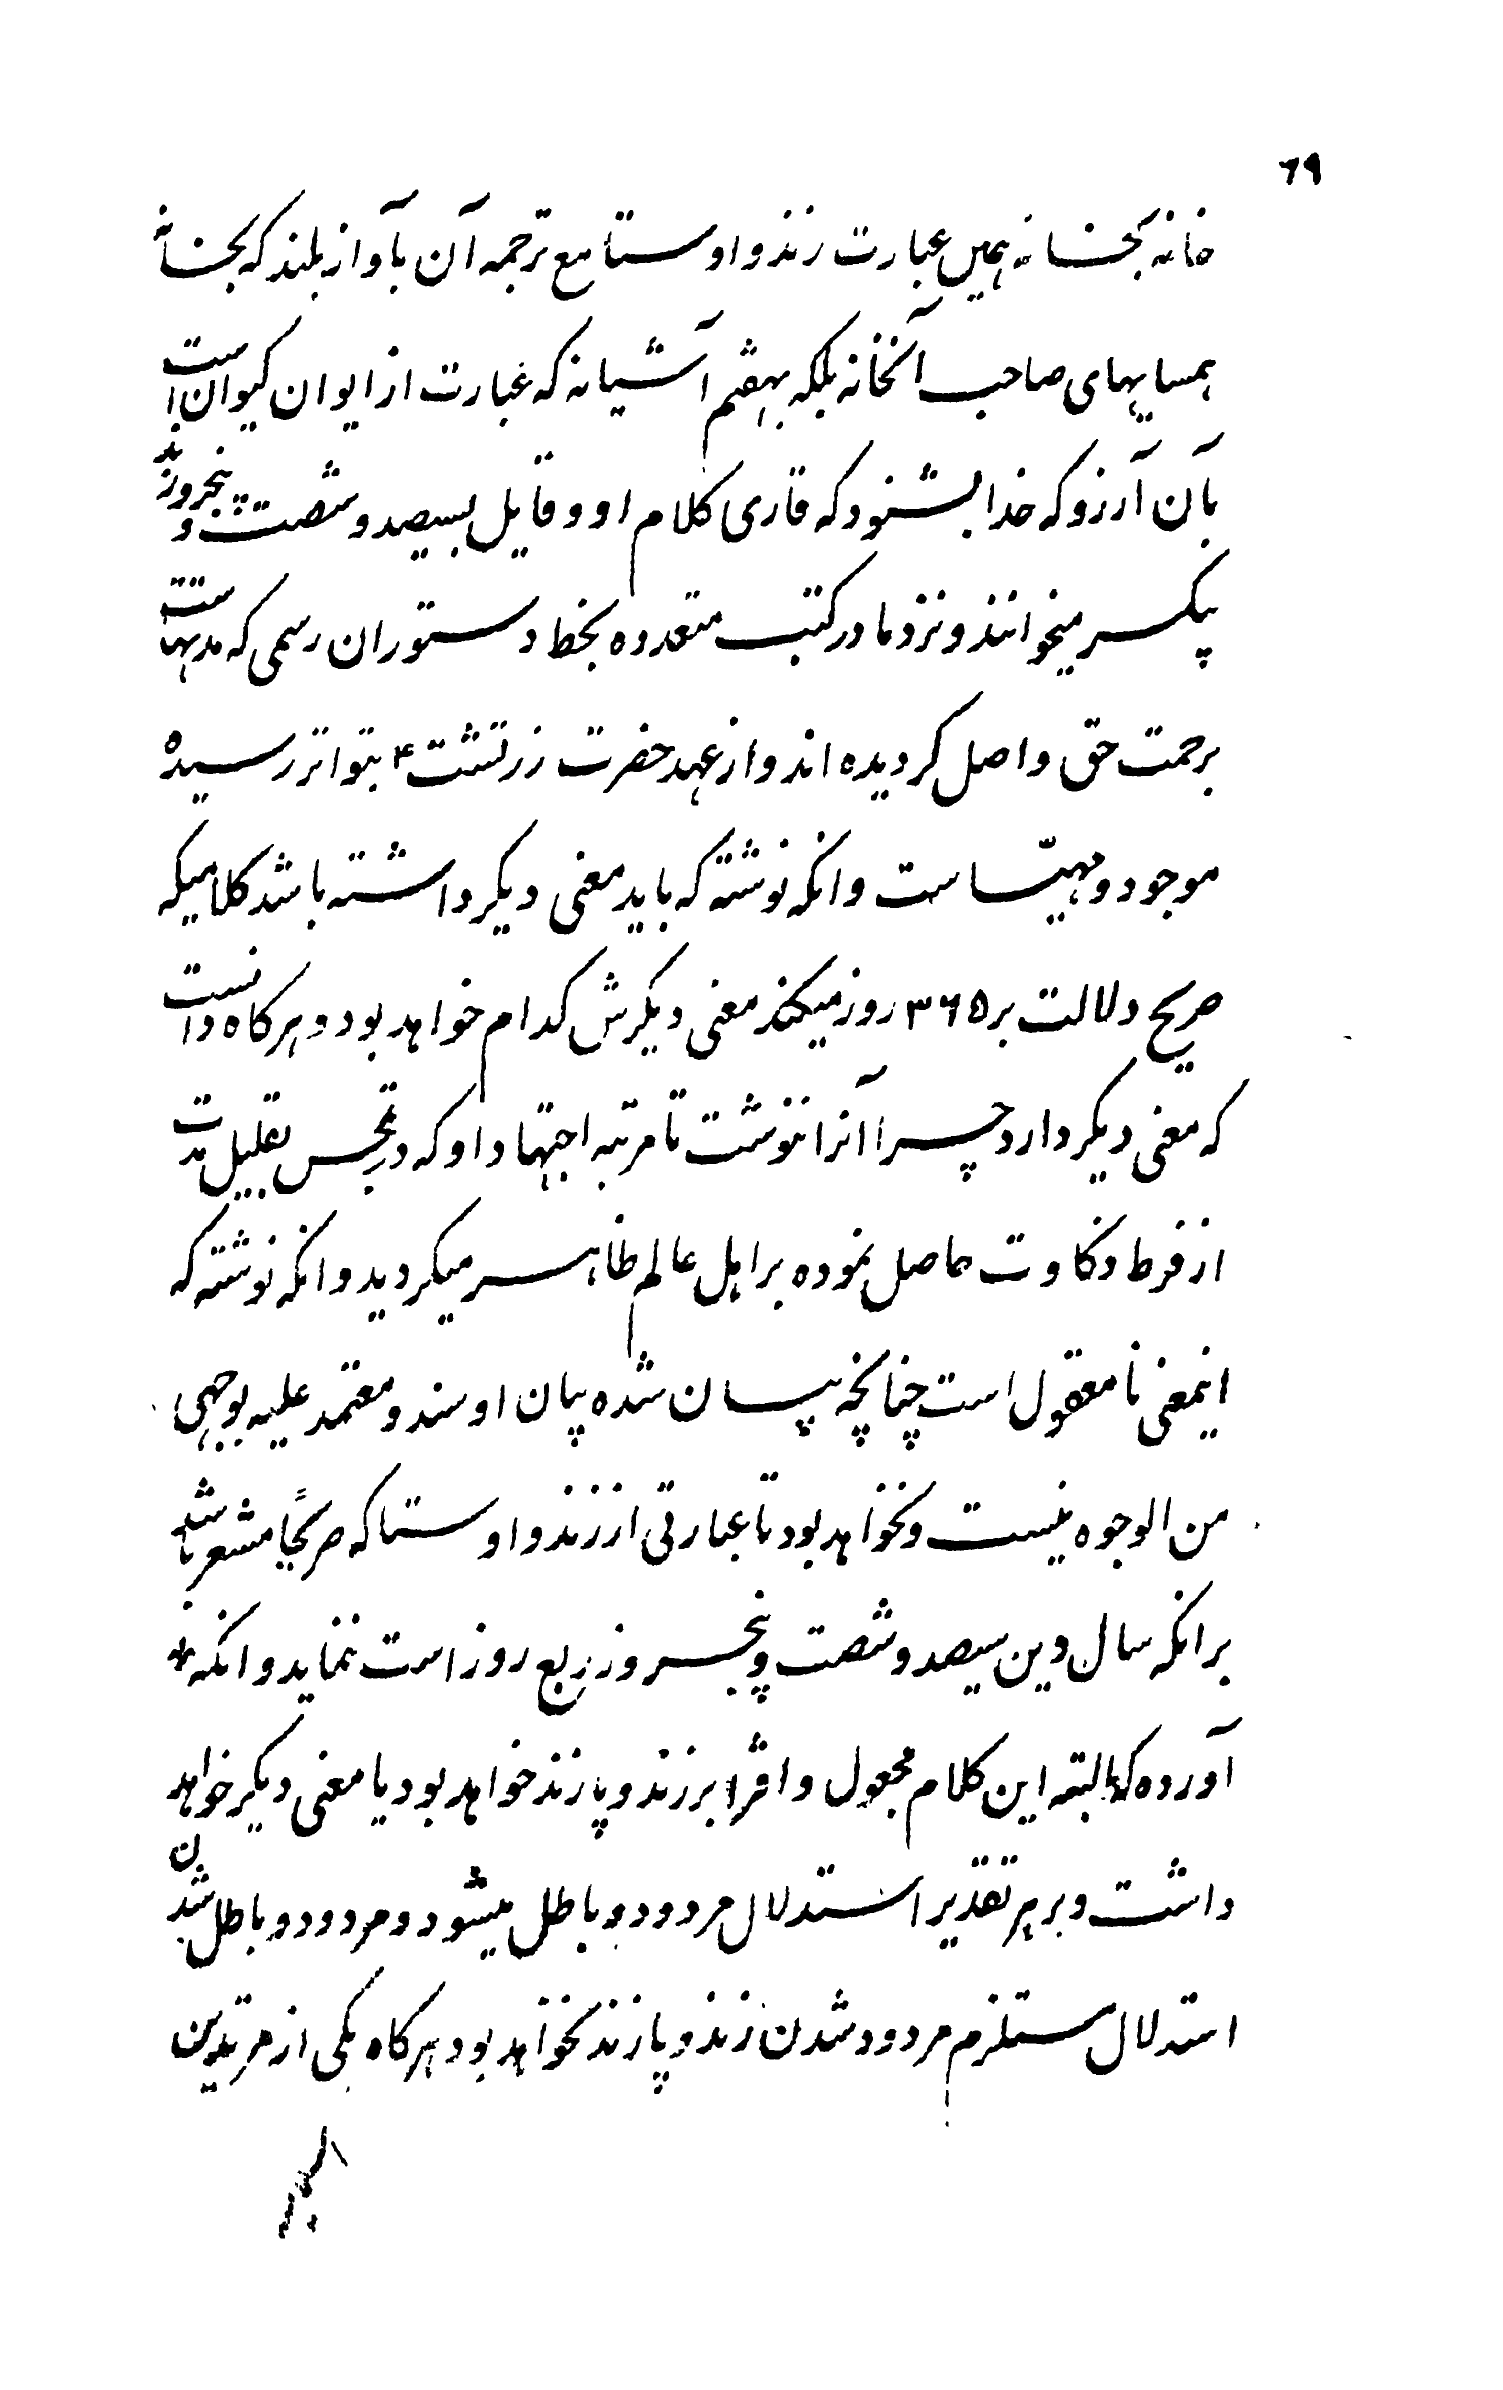 ٦٩
خانه بخانه همین عبارت زند و اوستا مع ترجمه آن بآواز بلند که بخانه
همسایهای صاحب آنخانه بلکه بهفتم آشیانه که عبارت از ایوان کیوان است
بآن آرزو که خدا بشنود که قاری کلام او و قایل بسیصد و شصت و پنجروزند
پیکسر میخوانند و نزد ما در کتب متعدده بخط دستوران رسمی که مدتهاست
برحمت حق واصل کردیده اند و از عهد حضرت زرتشت ۴ بتواتر رسیده
موجود و مهیّاست وانکه نوشته که باید معنی دیکر داشته باشد کلامیکه
صریح دلالت بر ۳٦۵ روز میکند معنی دیکرش کدام خواهد بود و هرکاه دانست
که معنی دیکر دارد چرا آنرا ننوشت تا مرتبه اجتهاد او که در تجسس بقلیل مدت
از فرط ذکاوت حاصل نموده بر اهل عالم ظاهر میکردید وانکه نوشته که
اینمعنی نا معقول است چنانچه بیان شده بیان او سند و معتمد علیه بوجهی
من الوجوه نیست و نخواهد بود تا عبارتی از زند و اوستا که صریحًا مشعر باشد
برانکه سال دین سیصد و شصت و پنجروز ربع روز است ننماید وانکه *
آورده که البته این کلام مجعول و افترا بر زند و پازند خواهد بود یا معنی دیکر خواهد
داشت و بر هر تقدیر استدلال مردود و باطل میشود و مردود و باطل شدن
استدلال مستلزم مردود شدن زند و پازند نخواهد بود هرکاه یکی از مرتدین